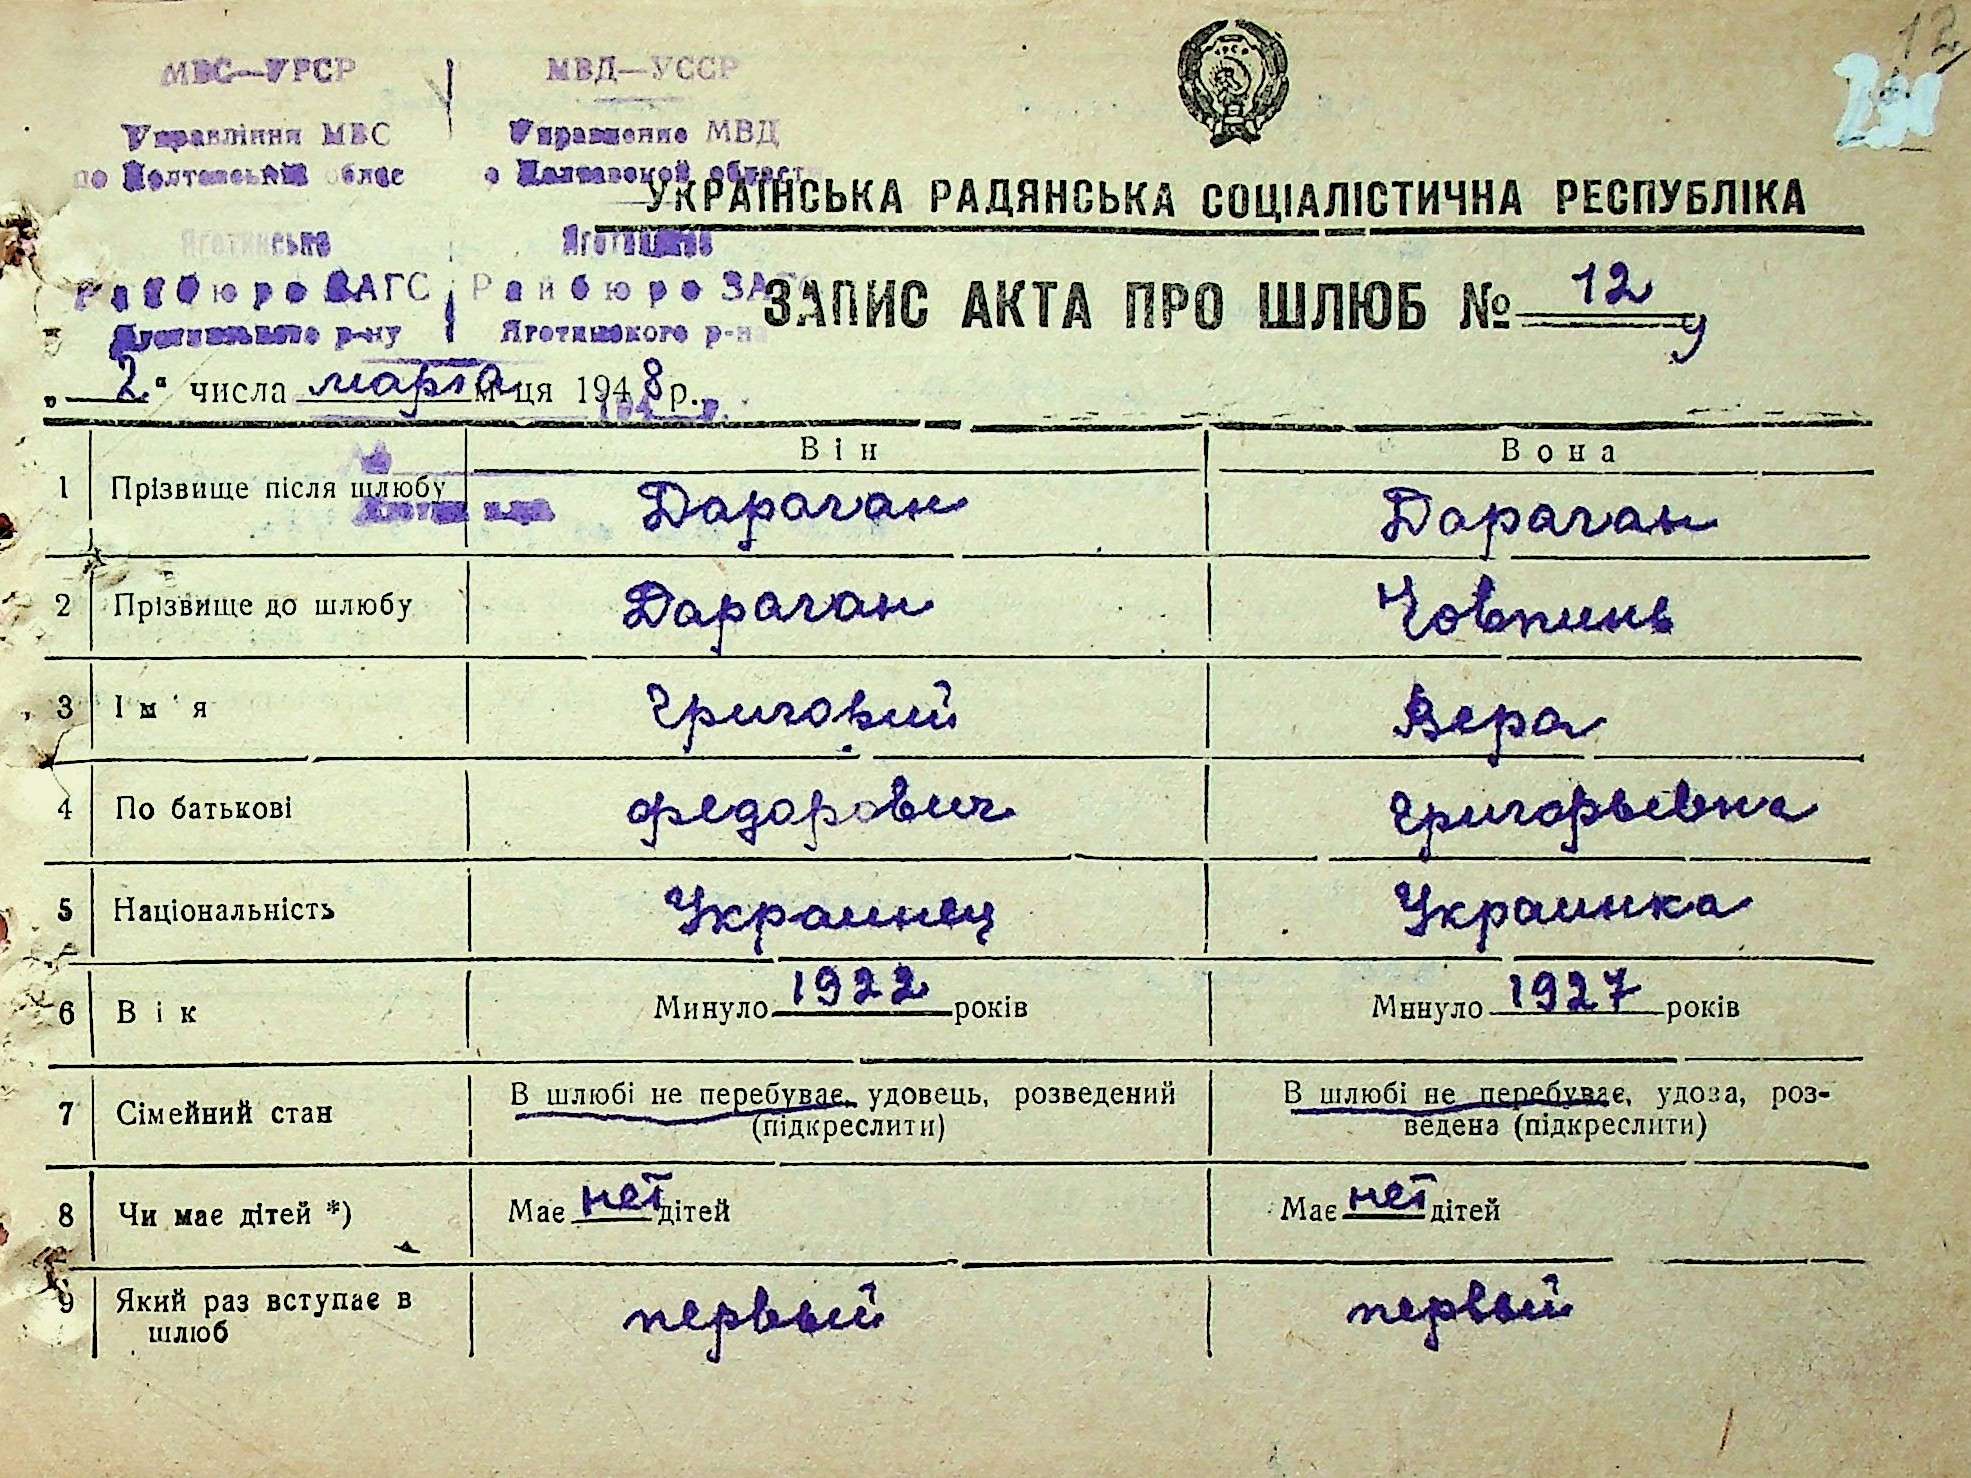 12
МВС—УРСР МВД—УССР
Управління МВС Управление МВД
по Полтавській облас о Полтавской области
УКРАЇНСЬКА РАДЯНСЬКА СОЦІАЛІСТИЧНА РЕСПУБЛІКА
Яготинське Яготинское
Райбюро ЗАГС Райбюро ЗАГС
ЗАПИС АКТА ПРО ШЛЮБ № 12
Яготинського р-ну Яготинского р-на
у
„ 2 “ числа марта м-ця 1948 р.
Він Вона
1 Прізвище після шлюбу Дараган Дараган
2 Прізвище до шлюбу Дараган Човпинь
3 Ім'я Григорий Вера
4 По батькові Федорович Григорьевна
5 Національність Украинец Украинка
6 Вік Минуло 1922 років Минуло 1927 років
7 Сімейний стан В шлюбі не перебуває, удовець, розведений В шлюбі не перебуває, удова, роз-
(підкреслити) ведена (підкреслити)
8 Чи має дітей *) Має нет дітей Має нет дітей
9 Який раз вступає в первый первый
шлюб